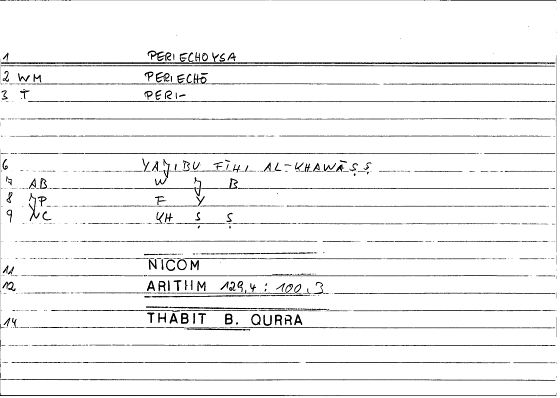 1 PERIECHOYSA
2 WM PERIECHŌ
3 T PERI-
6 YAJIBU FĪHI AL-KHAWĀṢṢ
7 AB W J B
8 JP F Y
9 NC KH Ṣ Ṣ
11 NICOM
12 ARITHM 129,4 : 100,3
14 THĀBIT B. QURRA